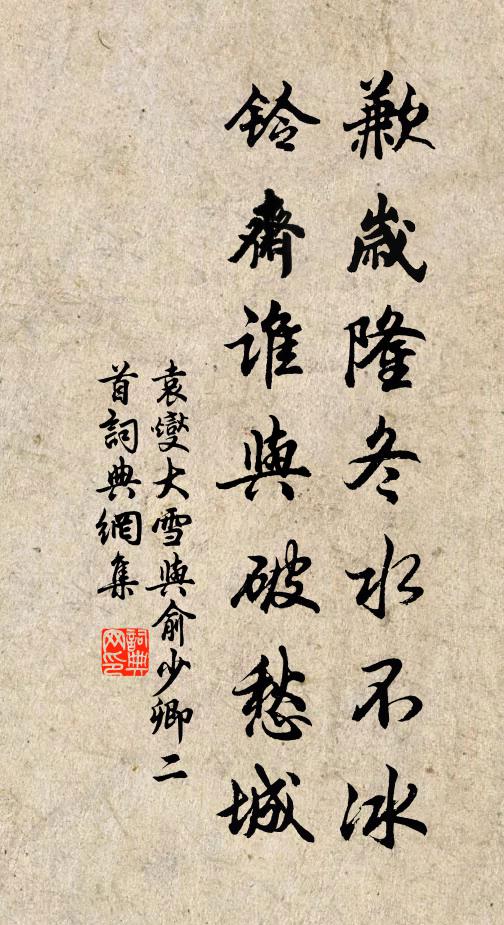 歉歲隆冬水不冰
鈴齋誰與破愁城
袁燮大雪與俞少卿二
首詞典網集
詞典网印